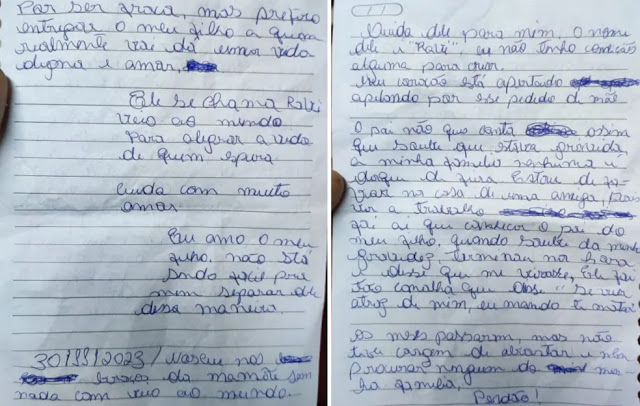 Por ser fraca, mas prefiro
entregar o meu filho a quem
realmente vai dá uma vida
digna e amor,
Ele se chama Ravi
veio ao mundo
para alegrar a vida
de quem espera
Cuida com muito
amor
Eu amo o meu
filho, não está
sendo facil pra
mim separar dele
dessa maneira.
30/11/2023/ Nasceu nos
braços da mamãe sem
nada com veio ao mundo.
11
Cuida dele para mim, o nome
dele e "Ravi", eu não tenho condição
alguma para criar.
Meu coração está apertado
apelando por esse pedido de mãe
O pai não que conta assim
que soube que estava gravida,
a minha familia nenhuma é
daqui de fora. Estou de
na casa de uma amiga, para
a trabalho
foi ai que conhecer o pai do
meu filho, quando soube da minha
gravidez, terminou na hora
e disse que me virasse, Ele foi
tão canalha que disse "Se vim
atraz de mim, eu mando ti matar
os meses passaram, mas não
tive coragem de abortar e nem
procurar ninguem da mi
ha familia,
Perdão!